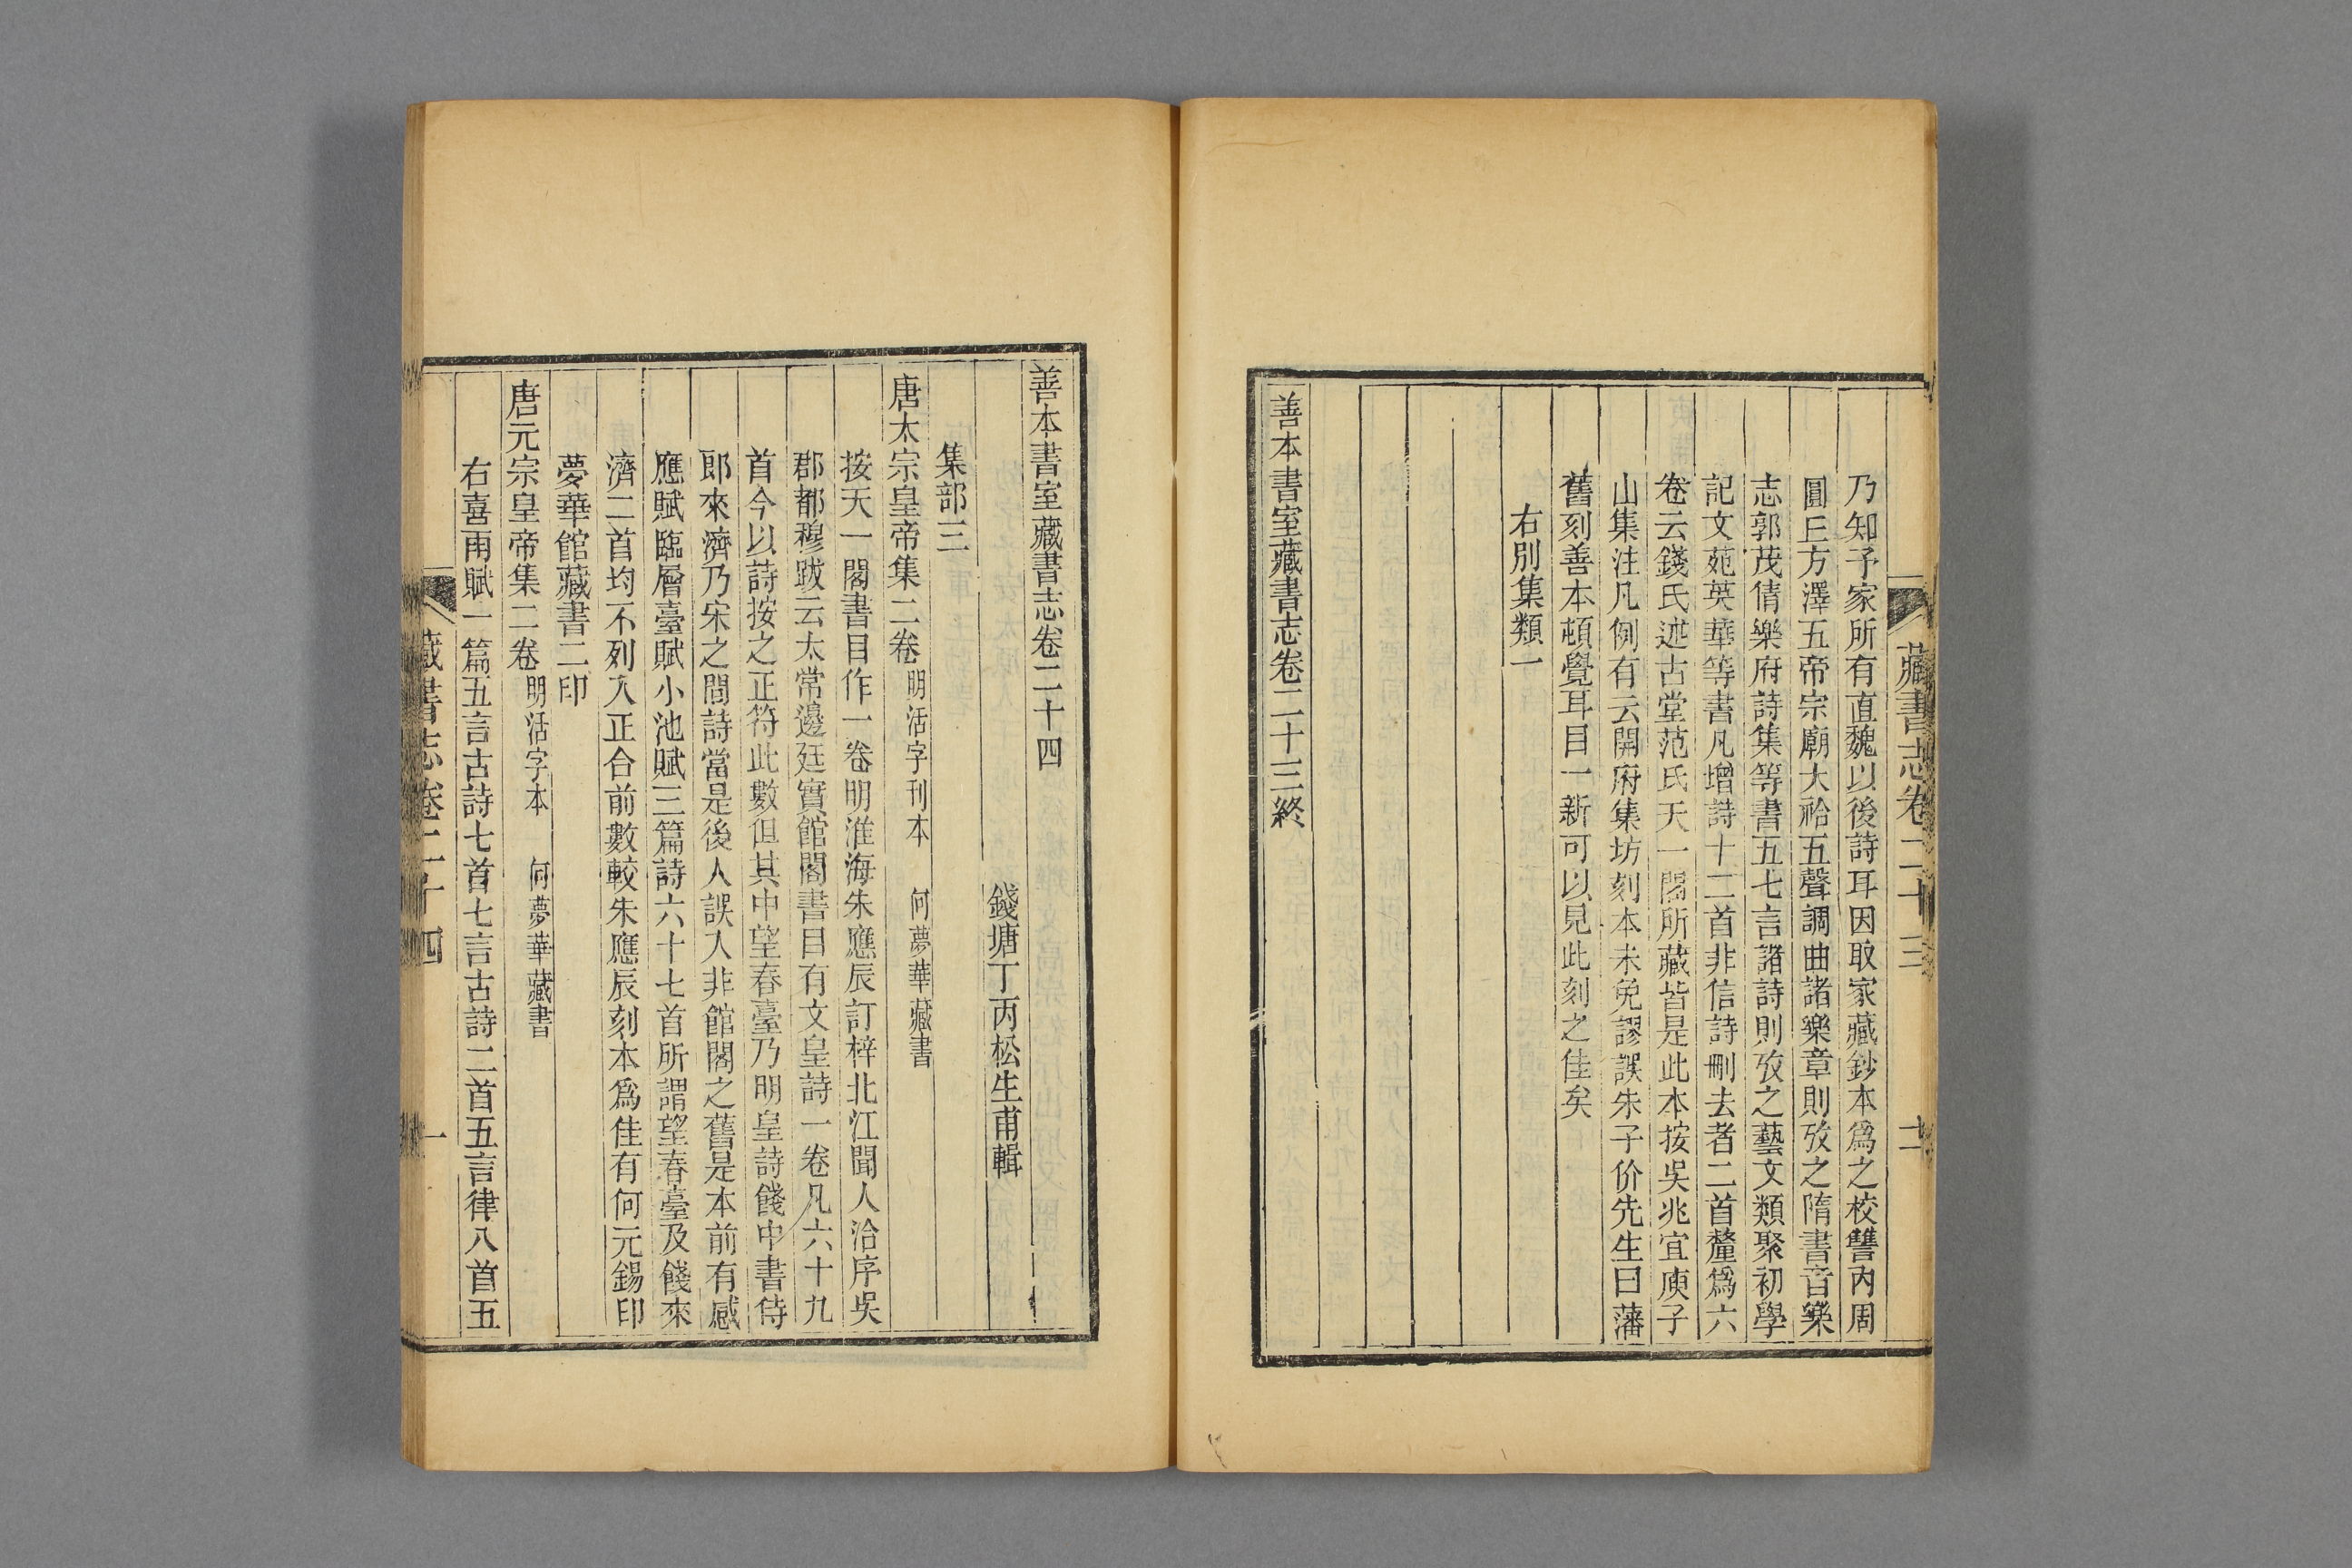 藏書志卷二十三
乃知予家所有直魏以後詩耳因取家藏鈔本爲之校讐內周
圓𠀌方澤五帝宗廟大祫五聲調曲諸樂章則攷之隋書音樂
志郭茂倩樂府詩集等書五七言諸詩則攷之藝文類聚初學
記文苑英華等書凡增詩十二首非信詩刪去者二首釐爲六
卷云錢氏述古堂范氏天一閣所藏皆是此本按吳兆宜庾子
山集注凡例有云開府集坊刻本未免謬誤朱子价先生曰藩
舊刻善本頓覺耳目一新可以見此刻之佳矣
右別集類一
善本書室藏書志卷二十三終
善本書室藏書志卷二十四
錢塘丁丙松生甫輯
集部三
唐太宗皇帝集二卷 明活字刊本 何夢華藏書
按天一閣書目作一卷明淮海朱應辰訂梓北江聞人洽序吳
郡都穆跋云太常邊廷實館閣書目有文皇詩一卷凡六十九
首今以詩按之正符此數但其中望春臺乃明皇詩餞中書侍
郎來濟乃宋之問詩當是後人誤入非館閣之舊是本前有感
應賦臨層臺賦小池賦三篇詩六十七首所謂望春臺及餞來
濟二首均不列入正合前數較朱應辰刻本爲佳有何元錫印
夢華館藏書二印
唐元宗皇帝集二卷 明活字本 何夢華藏書
右喜雨賦一篇五言古詩七首七言古詩二首五言律八首五
藏書志卷二十四 一